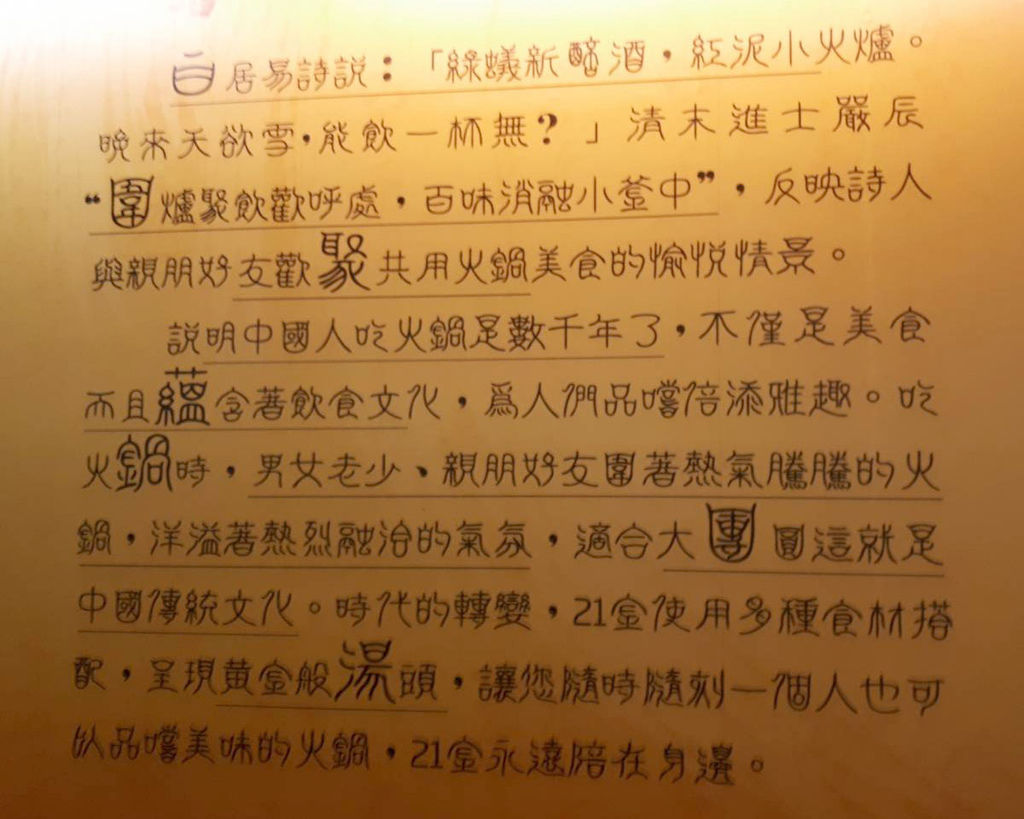 白居易詩說：「綠蟻新醅酒，紅泥小火爐。
晚來天欲雪，能飲一杯無？」清末進士嚴辰
“圍爐聚飲歡呼處，百味消融小釜中”，反映詩人
與親朋好友歡聚共用火鍋美食的愉悅情景。
說明中國人吃火鍋是數千年了，不僅是美食
而且蘊含著飲食文化，為人們品嚐倍添雅趣。吃
火鍋時，男女老少、親朋好友圍著熱氣騰騰的火
鍋，洋溢著熱烈融洽的氣氛，適合大團圓這就是
中國傳統文化。時代的轉變，21金使用多種食材搭
配，呈現黃金般湯頭，讓您隨時隨刻一個人也可
以品嚐美味的火鍋，21金永遠陪在身邊。